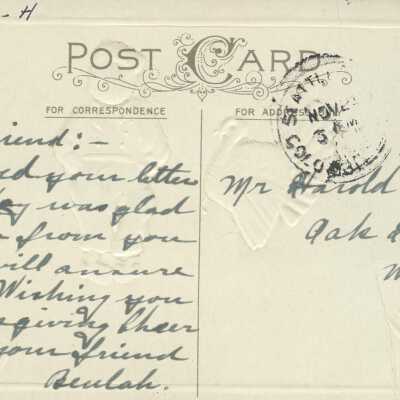 - H
POST CARD
FOR CORRESPONDENCE
FOR ADDRESS
SEATTLE
NOV
riend:-
ed your letter
ey was glad
from you
will answer
Wishing you
sgiving Cheer
your friend
Beulah.
Mr Harold
Oak